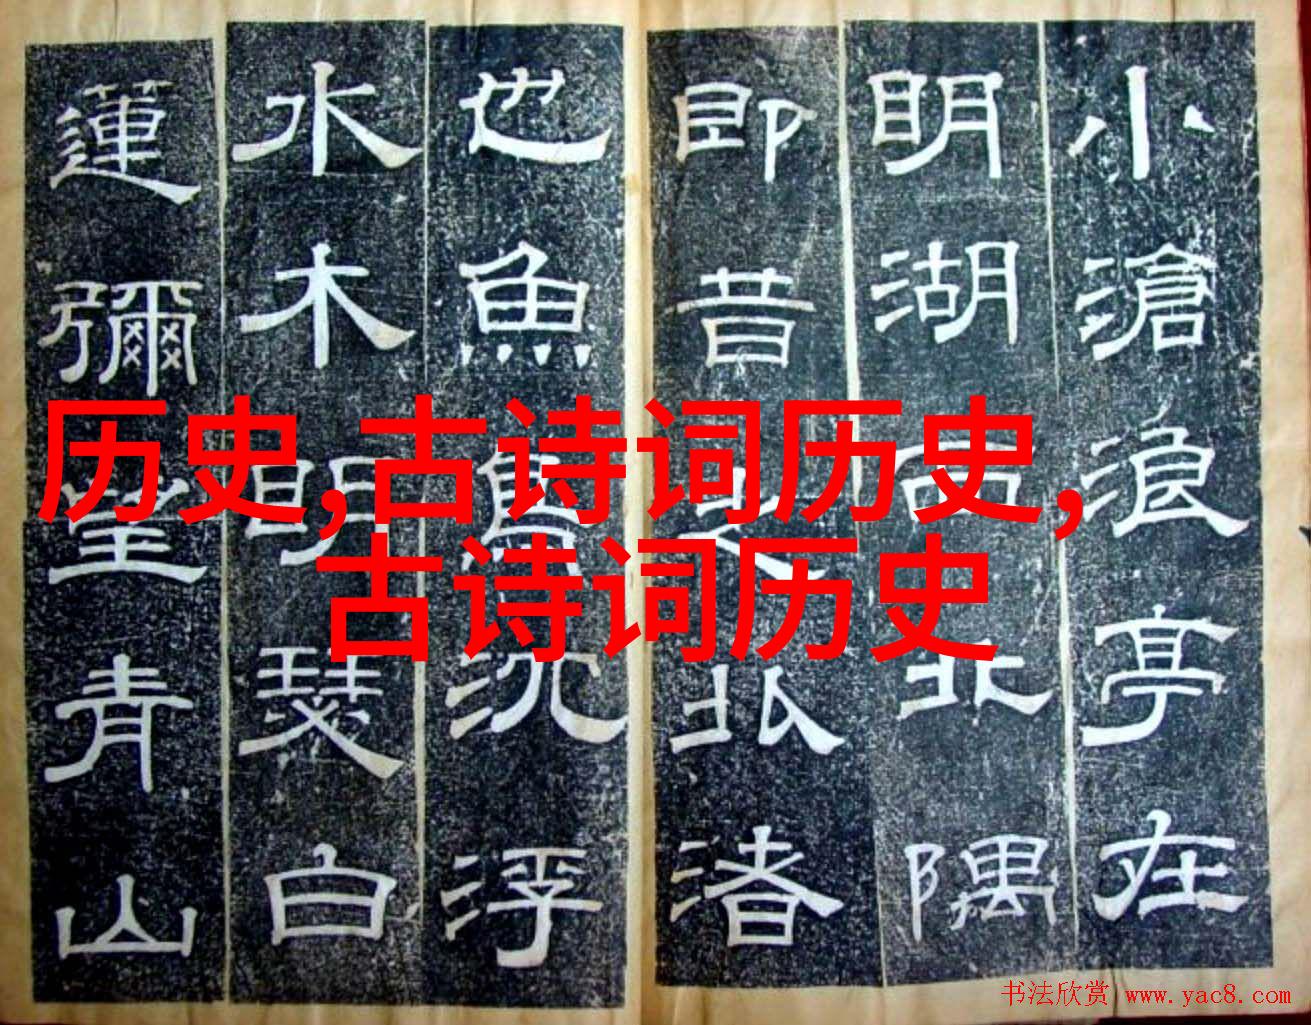 小滄浪亭在
明湖西北隅
即昔之北渚
也魚鳥沉浮
水木明瑟白
蓮彌望青山
历史,古诗词历史,
古诗词历史
书法欣赏 www.yac8.com